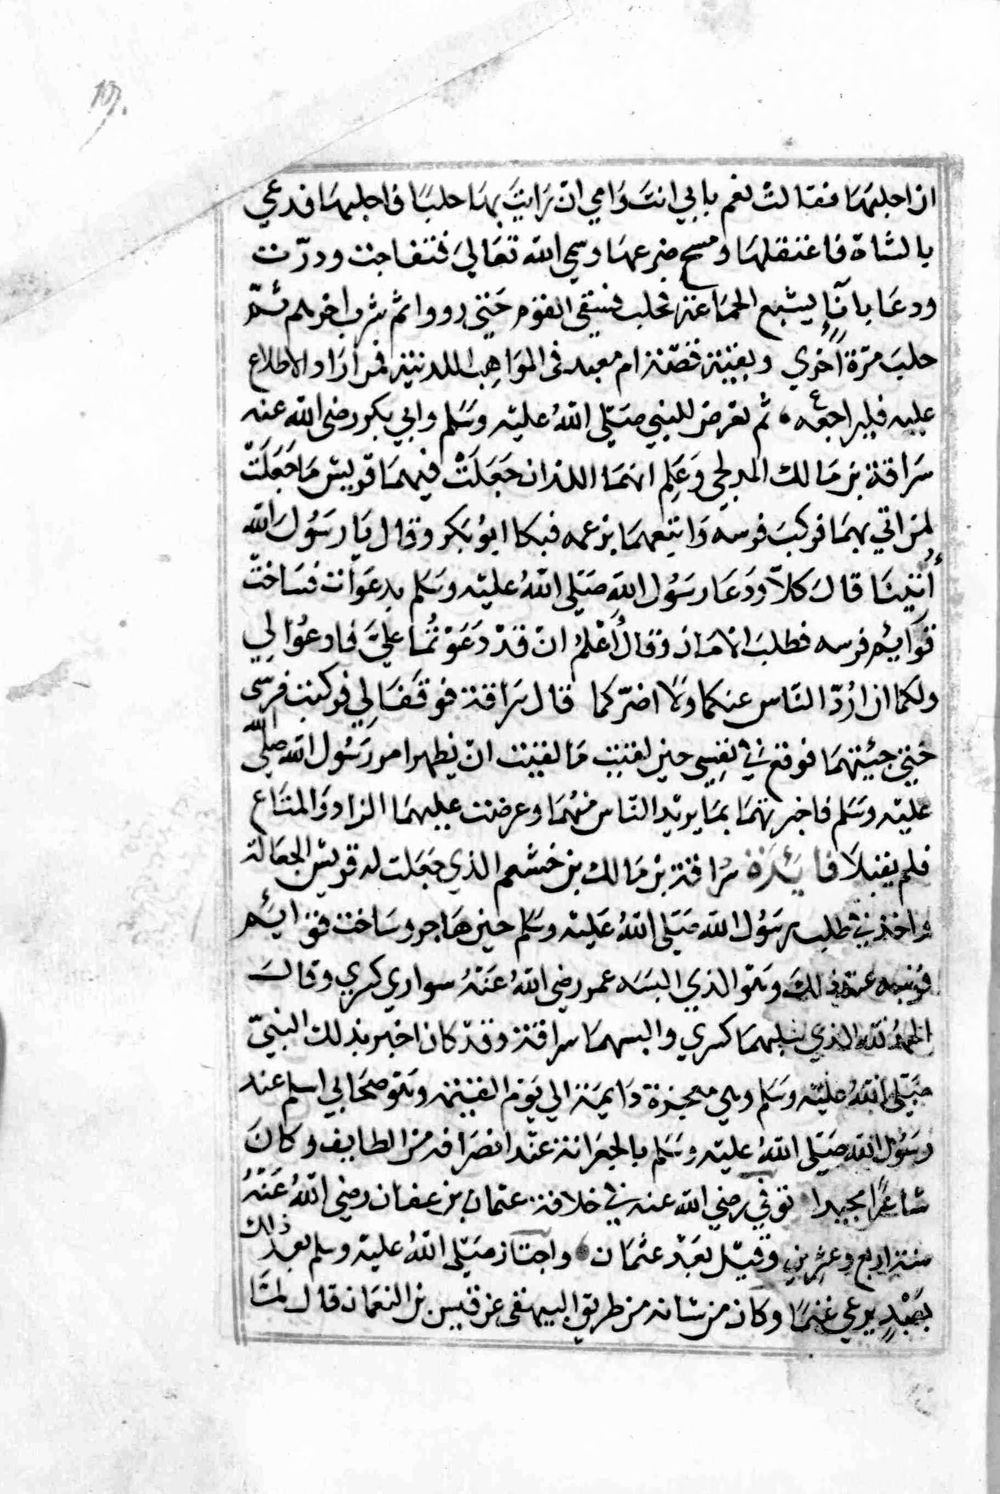 ان احلبها فقالت نعم بابي انت وامي ان رايت بها حلبا فاحلبها فدعي
بالشاة فاعتقلها ومسح ضرعها وسمي الله تعالي فتفاجت ودرّت
ودعا باناءٍ يشبع الجماعة فحلب فسقي القوم حتي رووا ثم شرب اخرهم ثم
حلب مرّة اخري وبقية قصّة ام معبد في المواهب اللدنية فمن اراد الاطلاع
عليه فليراجعه ثم تعرض للنبي صَلّي اللهُ عليه وسَلم وابي بكر رضي الله عنه
سراقة بن مالك المدلجي وعَلِم انهما اللذان جَعَلَتْ فيهما قريش ما جَعَلَتْ
لمن اتي بهما فركب فرسه واتبعهما بزعمه فبكا ابو بكر وقال يا رسُول الله
أُتينا قال كلّا ودَعَا رسُول الله صَلّي اللهُ عليه وسَلم بدعَوات فسَاخت
قوايم فرسه فطلب الامان وقال أعْلمُ ان قدْ دَعَوْتُما عليّ فادعُوا لي
ولكما ان ارُدّ النّاس عنكما ولا اضرّكما قال سراقة فوقفا لي فركبت فرسي
حتي جئتهما فوقع في نفسي حين لقيت ما لقيت ان يظهر امر رَسُول الله صلي الله
عليه وسَلم فاخبرتهما بما يريد الناس منهما وعرضت عليهما الزاد والمتاع
فلم يقبلا فائدة سُراقة بن مالك بن خشعم الذي جَعَلت له قريش الجعالة
واخذ في طلب رسُول الله صَلّي اللهُ عَليه وسَلم حين هاجر وساخت قوايم
فرسه عند ذلك وهو الذي البسه عمر رضي اللهُ عَنْهُ سواري كسري وقال
الحمد لله الذي سلبهما كسري والبسهما سراقة وقد كان اخبر بذلك النبيّ
صَلّي اللهُ عليه وسَلم وهي معجزة دايمة الي يوم القيمة وهو صحابي اسلم عند
رسُول الله صَلّي اللهُ عليه وسَلم بالجعرانة عند انصرافه من الطايف وكان
شاعرًا مجيدا توفي رضي الله عنه في خلافة عثمان بن عفان رضي اللهُ عَنْهُ
سنة اربع وعشرين وقيل بَعْد عثمان واجتاز صَلّي اللهُ عليه وسلم بعد ذلك
بعَبْدٍ يرعي غنمًا وكان من شانه من طريق البيهقي عن قيس بن النعمان قال لمّا